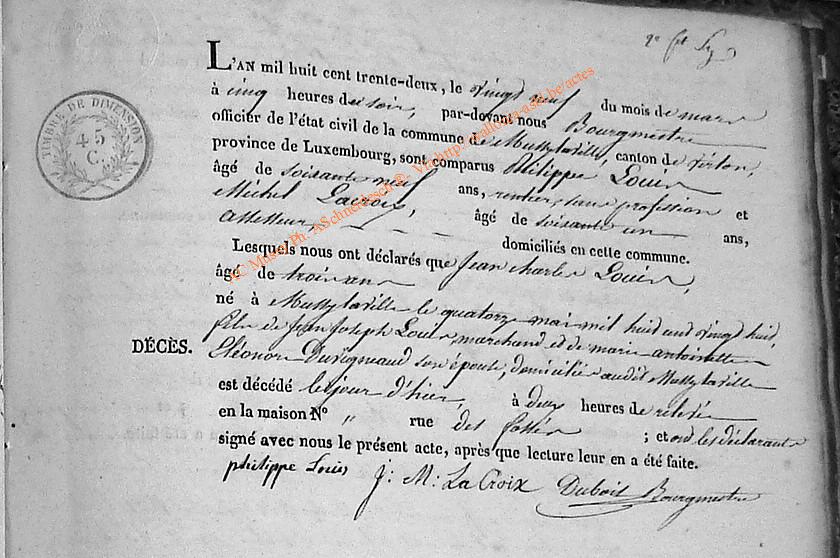 L'AN mil huit cent trente-deux, le vingt neuf du mois de mars
à cinq heures du soir, par-devant nous Bourgmestre
officier de l'état civil de la commune de Mussylaville, canton de virton,
province de Luxembourg, sont comparus Philippe Louis
âgé de soixante neuf ans, rentier, sans profession et
Michel Lacroix, âgé de soixante un ans,
assesseur, domiciliés en cette commune.
Lesquels nous ont déclarés que Jean Charles Louis,
âgé de trois ans
né à Mussylaville le quatorze mai mil huit cent vingt huit,
fils de Jean Joseph Louis marchand et de marie antoinette
DÉCÈS.
Eléonore Duvigneaud son épouse, domiciliés audit Mussylaville
est décédé le jour d'hier, à deux heures de relevée
en la maison N° " rue des fossés ; et ont les déclarants
signé avec nous le présent acte, après que lecture leur en a été faite.
philippe Louis J: M: La Croix Duboit Bourgmestre
TIMBRE DE DIMENSION
45
C.